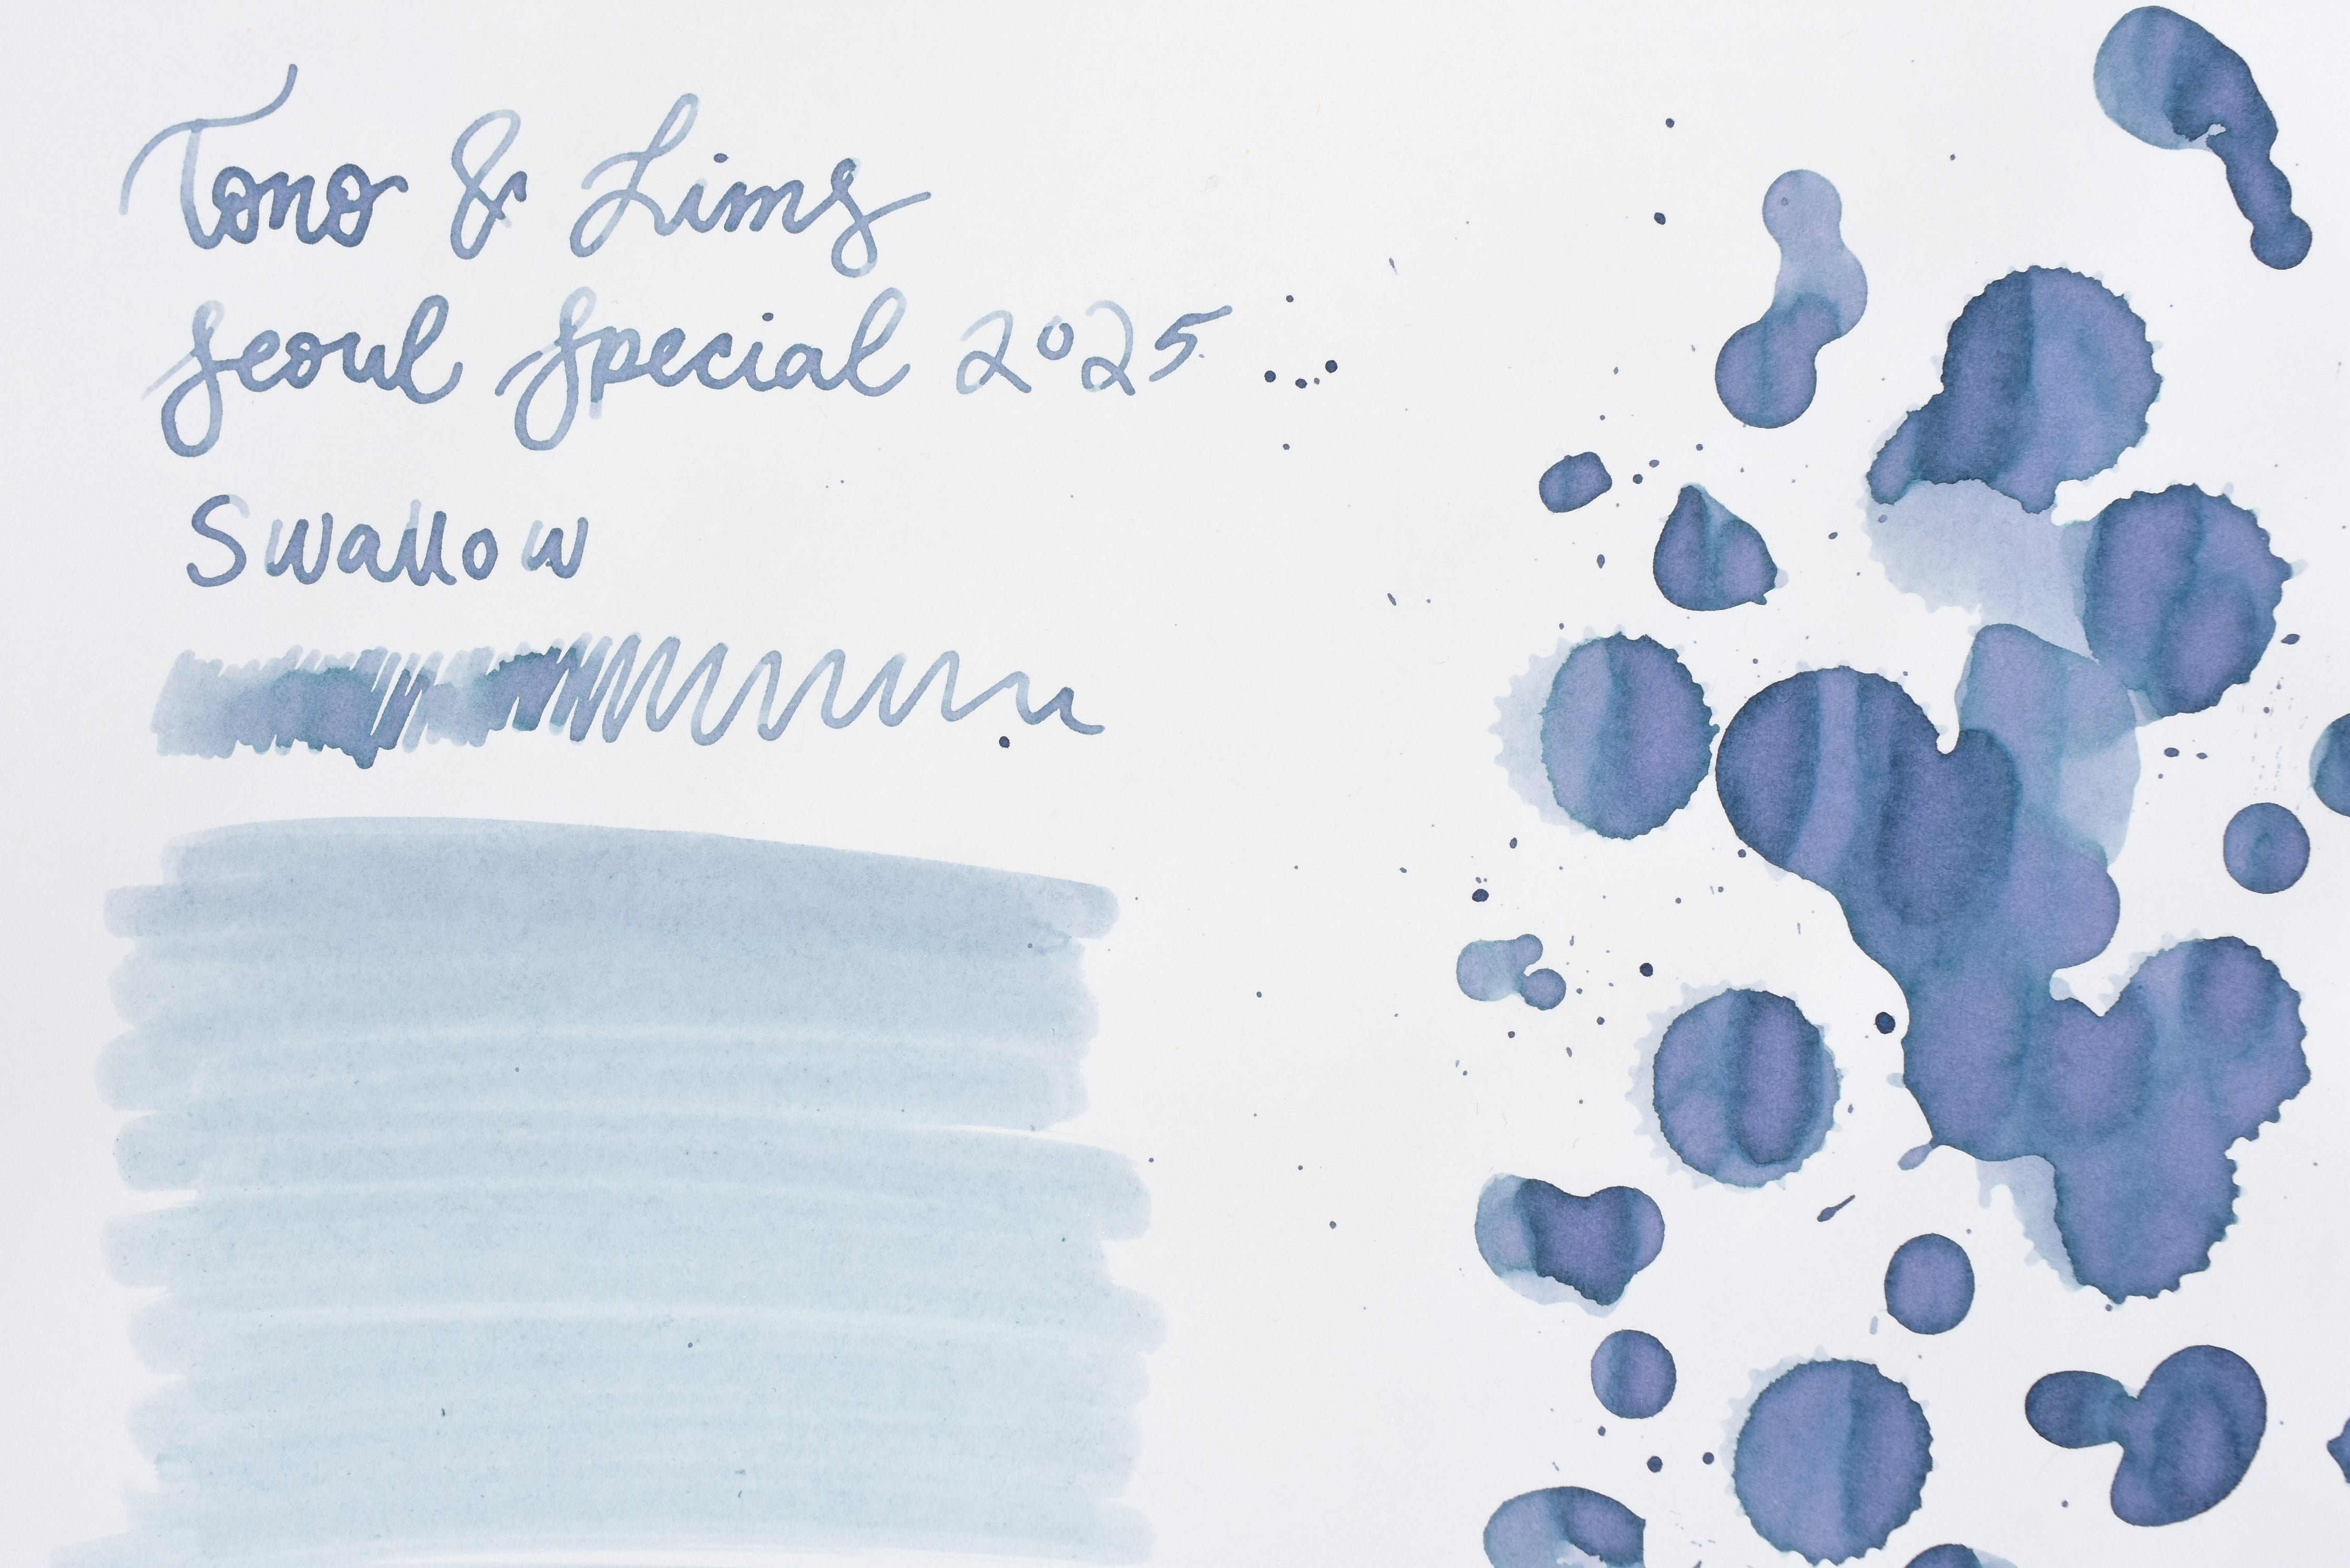 Tono & Lims
Seoul Special 2025
Swallow